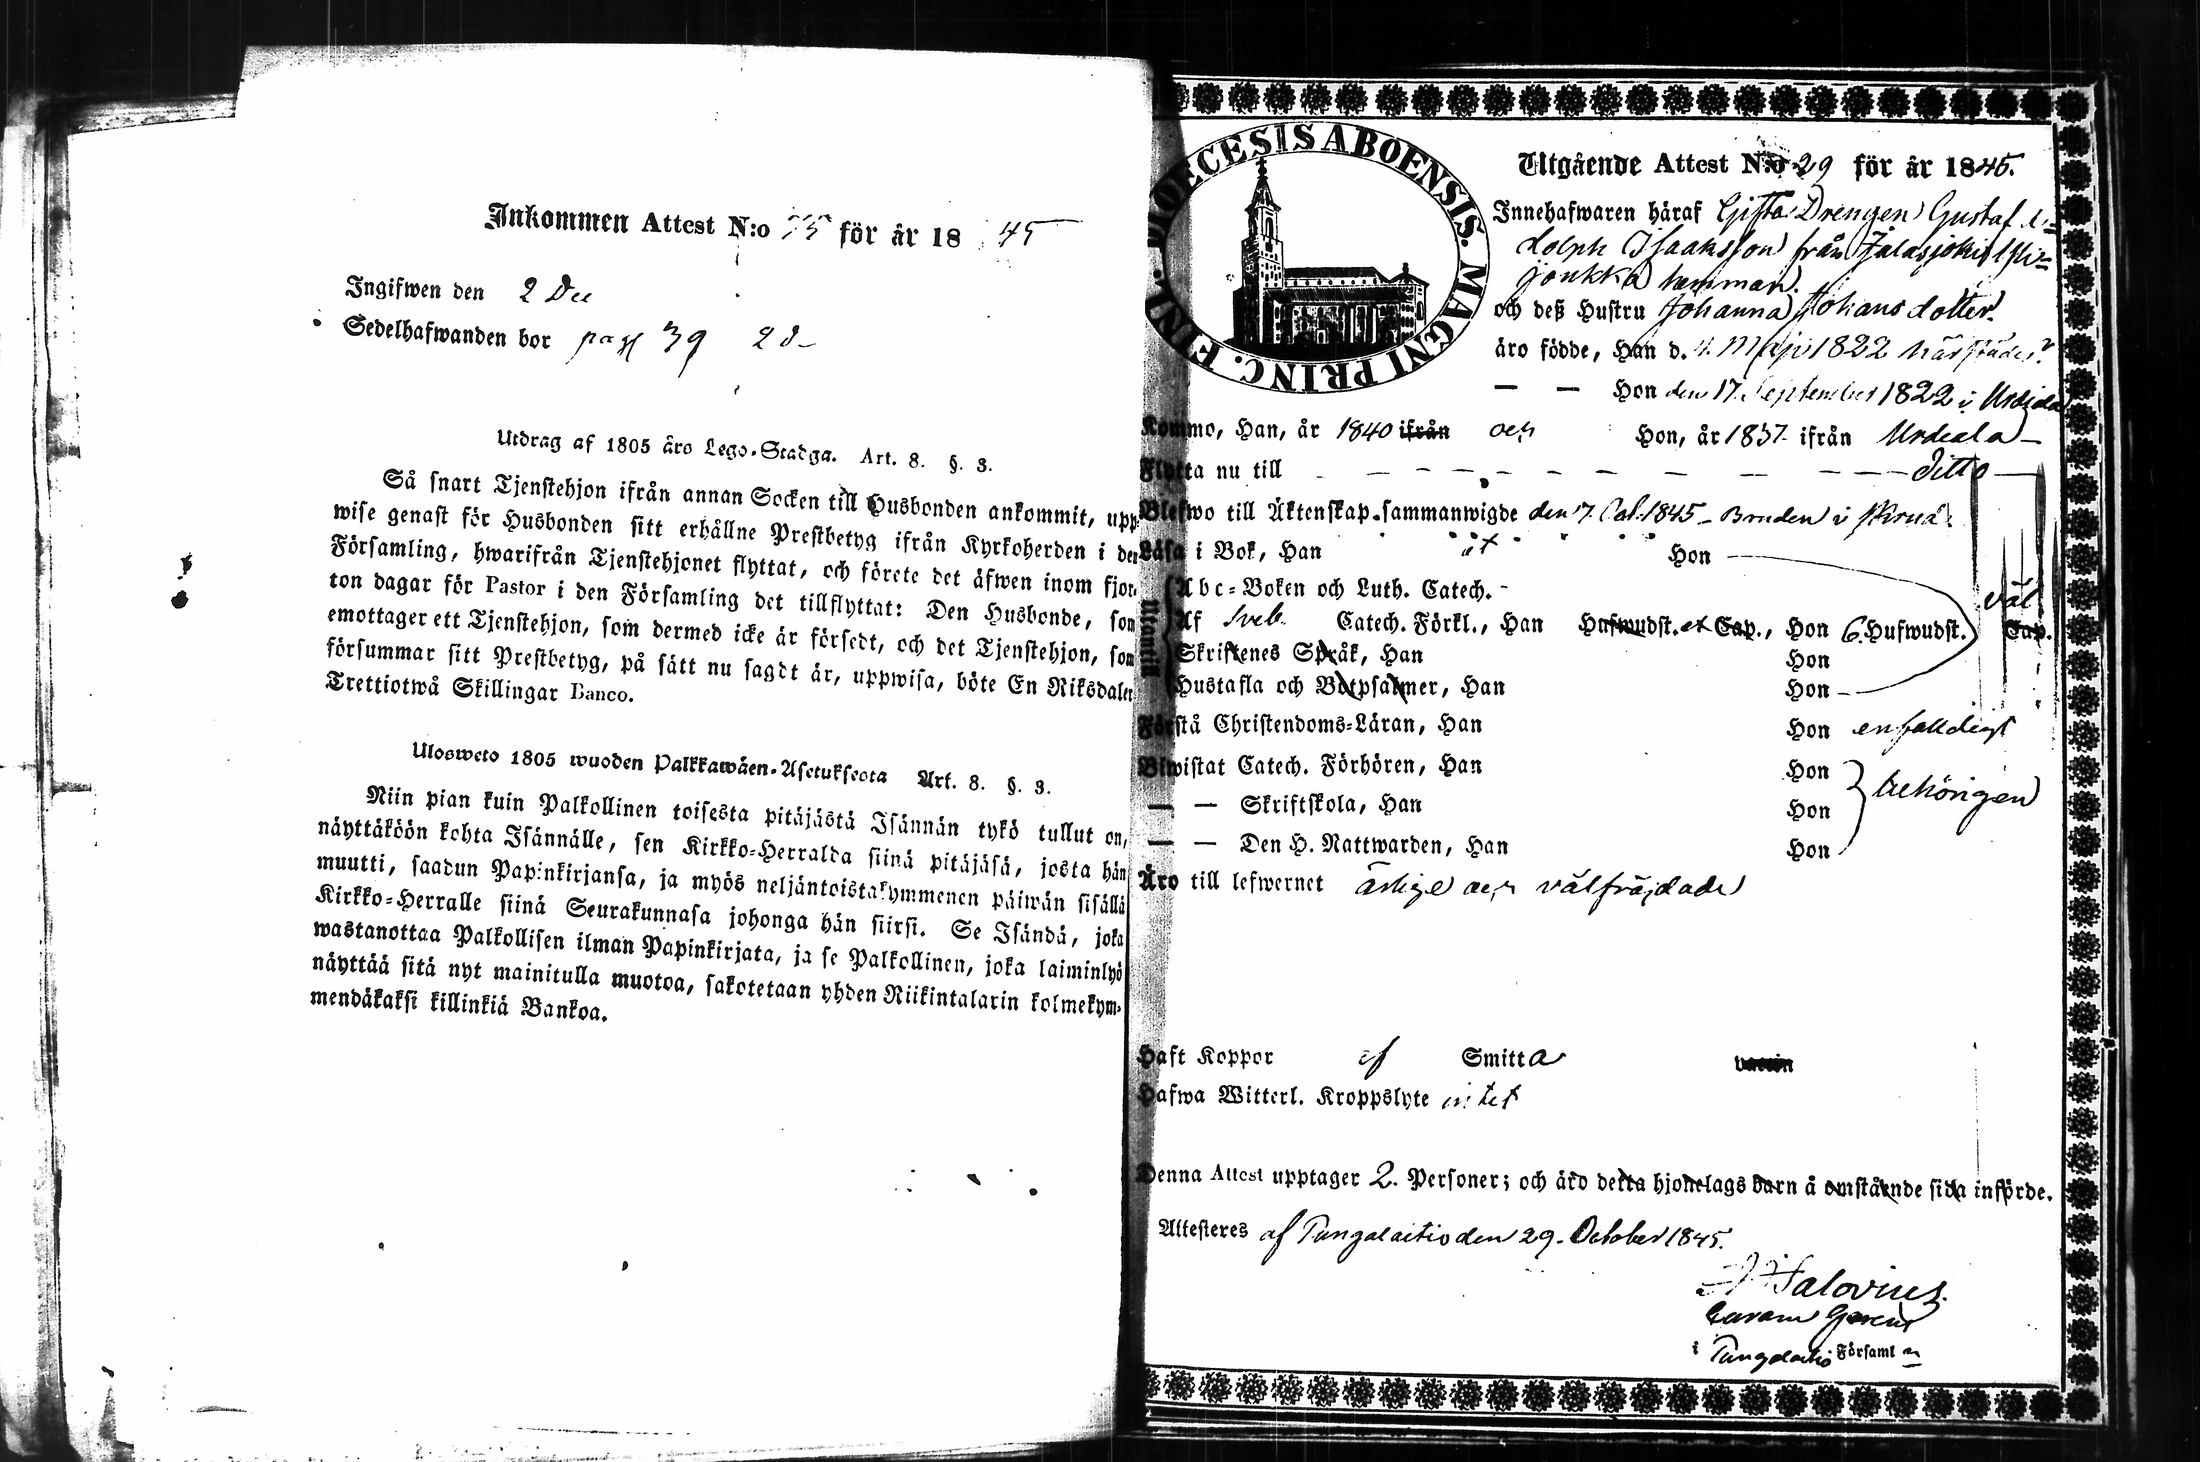 Inkommen Attest N:o 75 för år 1845
Ingifwen den 2 Dec
Sedelhafwanden bor pag 39
Utdrag af 1805 års Lego-Stadga. Art. 8. §. 3.
Så snart Tjenstehjon ifrån annan Socken till Husbonden ankommit, upp-
wise genast för Husbonden sitt erhållne Prestbetyg ifrån Kyrkoherden i den
Församling, hwarifrån Tjenstehjonet flyttat, och förete det äfwen inom fjor-
ton dagar för Pastor i den Församling det tillflyttat: Den Husbonde, som
emottager ett Tjenstehjon, som dermed icke är försedt, och det Tjenstehjon, som
försummar sitt Prestbetyg, på sätt nu sagdt är, uppwisa, böte En Riksdaler
Trettiotwå Skillingar Banco.
Ulosweto 1805 wuoden Palkkawäen-Asetuksesta Art. 8. §. 3.
Niin pian kuin Palkollinen toisesta pitäjästä Isännän tykö tullut on,
näyttäköön kohta Isännälle, sen Kirkko-Herralda siinä pitäjäsä, josta hän
muutti, saadun Papinkirjansa, ja myös neljäntoistakymmenen päiwän sisällä
Kirkko-Herralle siinä Seurakunnasa johonga hän siirsi. Se Isändä, joka
wastanottaa Palkollisen ilman Papinkirjata, ja se Palkollinen, joka laiminlyö
näyttää sitä nyt mainitulla muotoa, sakotetaan yhden Riikintalarin kolmekym-
mendäkaksi killinkiä Bankoa.
DIOECESIS ABOENSIS. MAGNI PRINC. FINL.
Utgående Attest N:o 29 för år 1845.
Innehafwaren häraf Gifta Drengen Gustaf A-
dolph Isaaksson från Jalasjoki
joukka hemman.
och deß Hustru Johanna Johansdotter.
äro födde, Han d. 4. Maji 1822 härstädes.
— — Hon den 17. September 1822 i Urdiala
Kommo, Han, år 1840 ifrån och Hon, år 1837 ifrån Urdiala
Flytta nu till — — — — — — — — Ditto —
Blefwo till Äktenskap sammanwigde den 7. 1845 - Bruden i
Läsa i Bok, Han et Hon
Abc-Boken och Luth. Catech. väl
Utantill Af Sveb. Catech. Förkl., Han Hufwudst. et Cap., Hon 6. Hufwudst. Cap.
Skriftenes Språk, Han Hon
Hustafla och Botpsalmer, Han Hon
Förstå Christendoms-Läran, Han Hon enfalldigt
Biwistat Catech. Förhören, Han Hon behörigen
— — Skriftskola, Han Hon
— — Den H. Nattwarden, Han Hon
Äro till lefwernet ärlige och välfräjdade
Haft Koppor af Smitta vaccin
Hafwa Witterl. Kroppslyte intet
Denna Attest upptager 2. Personer; och äro detta hjonelags barn å omstående sida införde.
Attesteres af Pungalaitio den 29. October 1845.
Salovius.
Curam Gerens
i Pungalaitio Församl